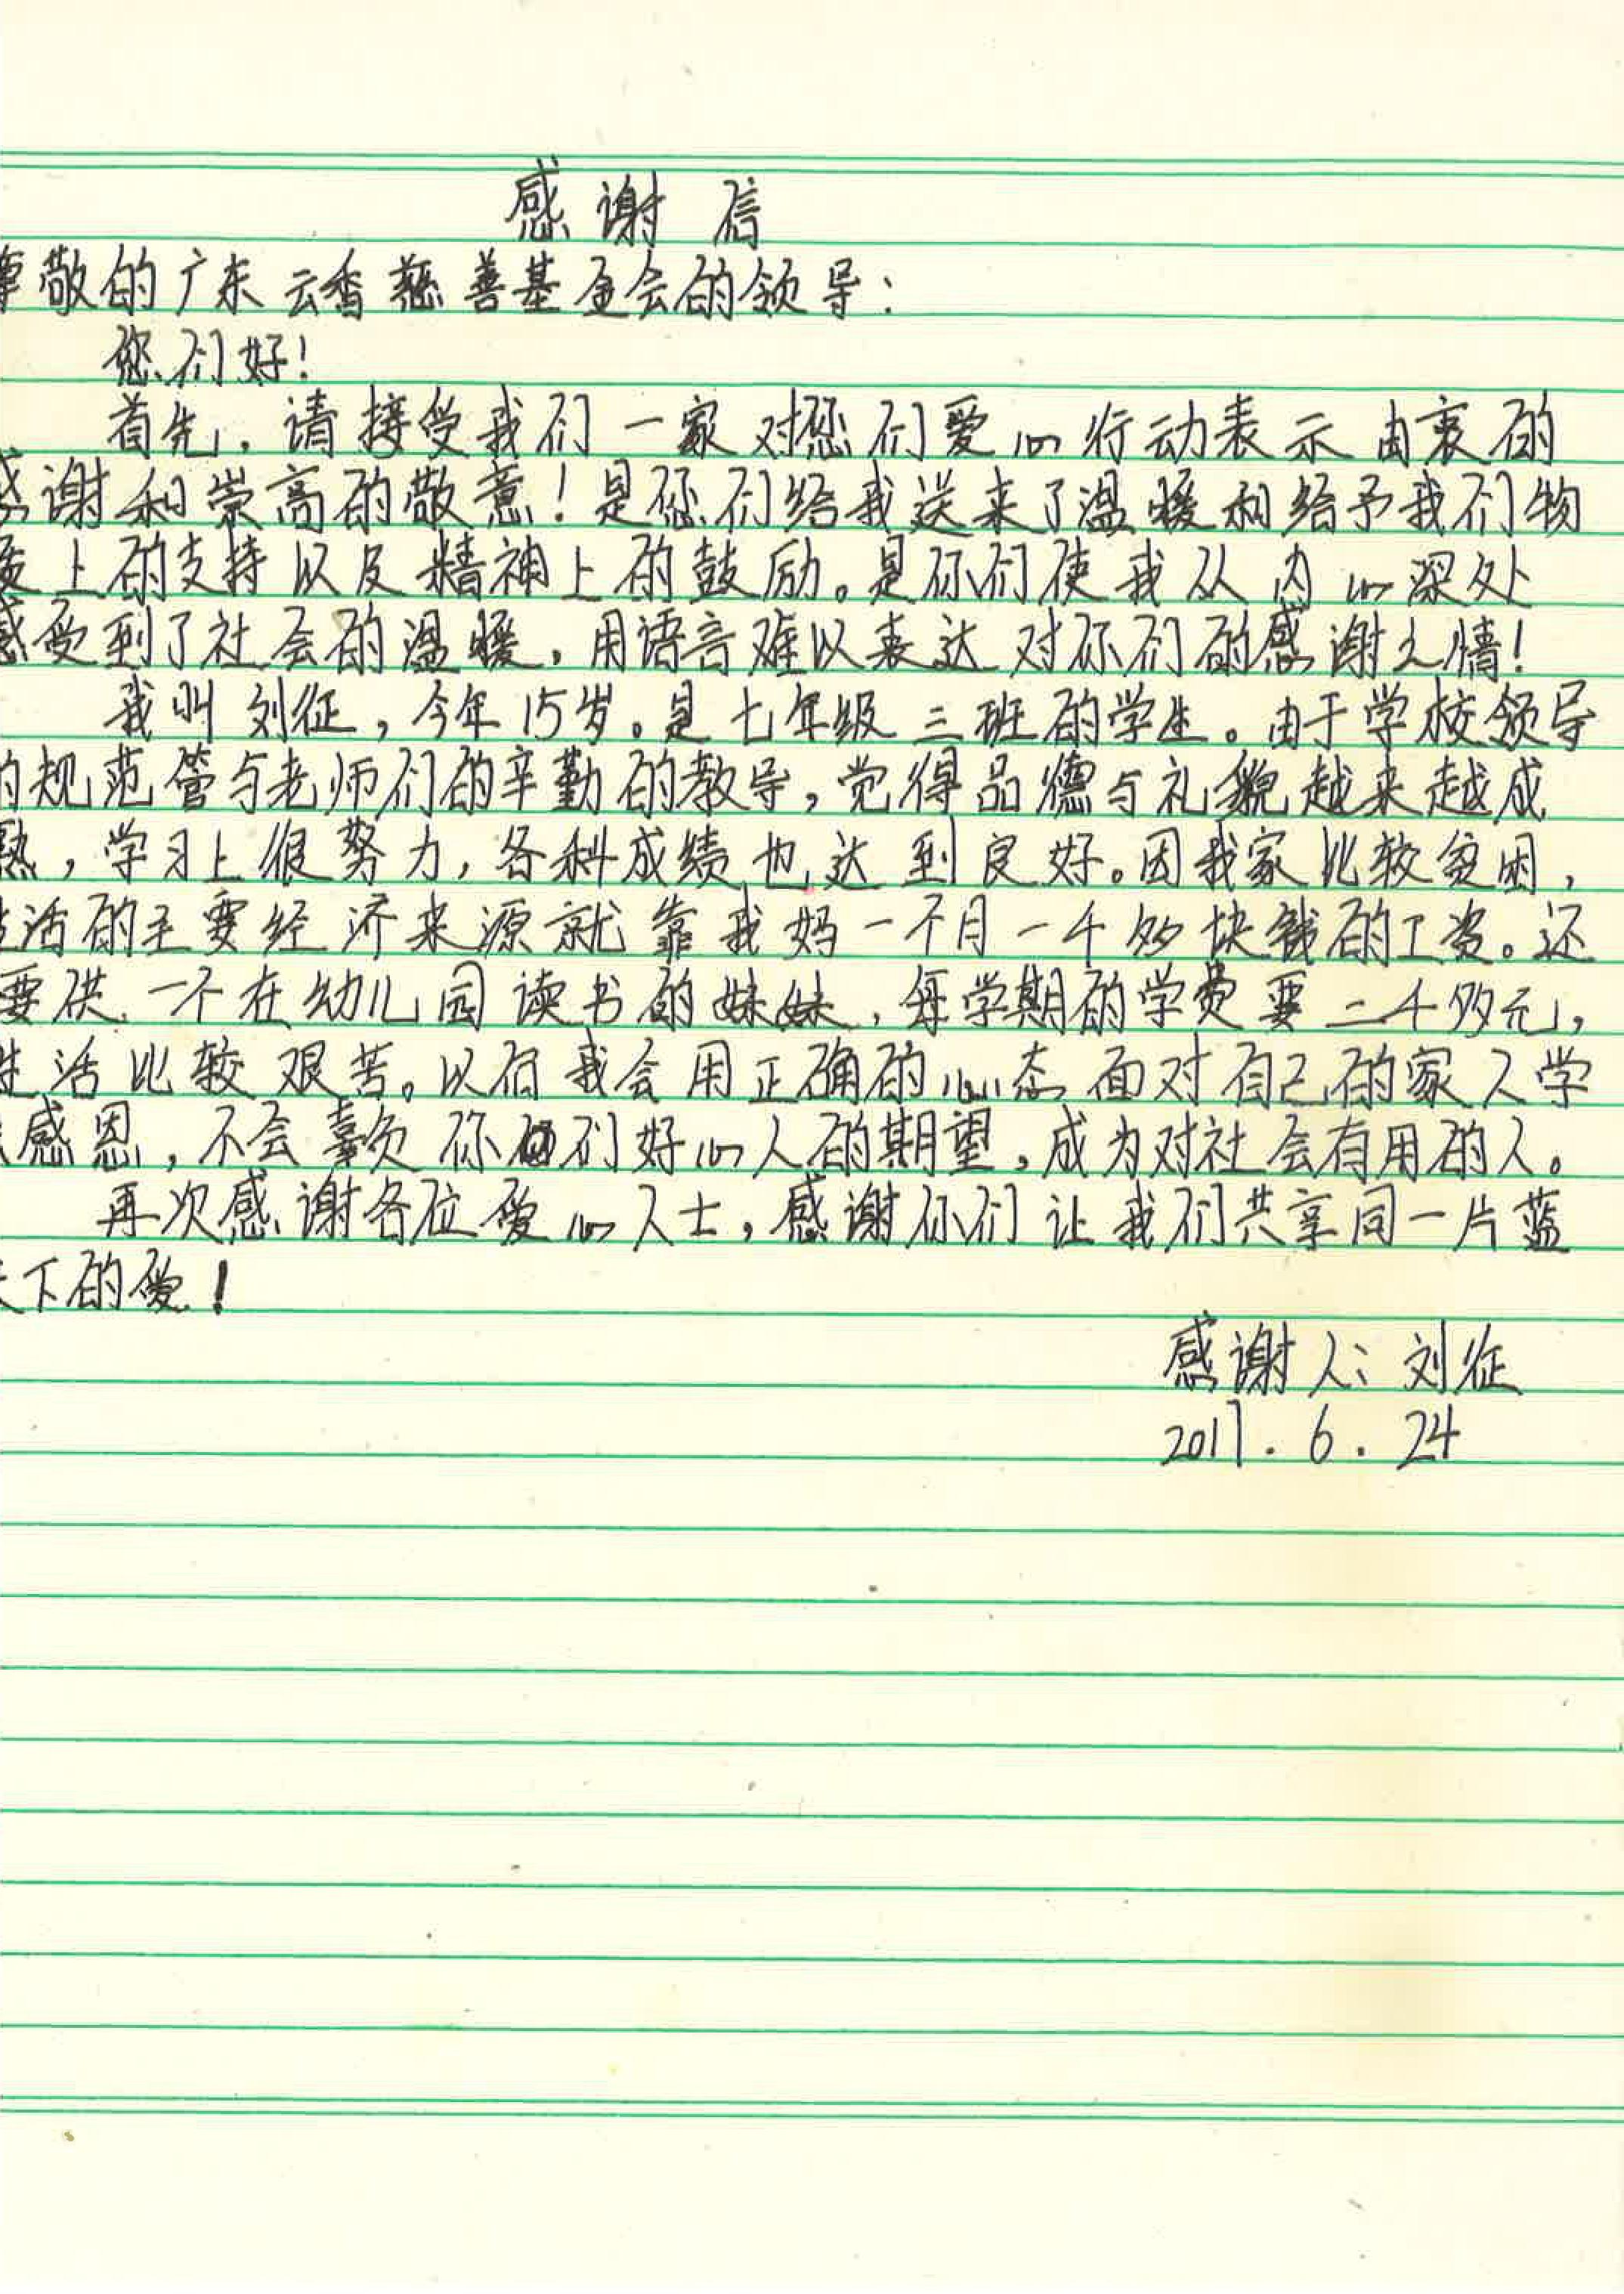 感谢信
尊敬的广东云香慈善基金会的领导：
您们好！
首先，请接受我们一家对您们爱心行动表示由衷的
感谢和崇高的敬意！是您们给我送来了温暖和给予我们物
质上的支持以及精神上的鼓励。是你们使我从内心深处
感受到了社会的温暖，用语言难以表达对你们的感谢之情！
我叫刘征，今年15岁。是七年级三班的学生。由于学校领导
的规范管与老师们的辛勤的教导，觉得品德与礼貌越来越成
熟，学习上很努力，各科成绩也达到良好。因我家比较贫困，
生活的主要经济来源就靠我妈一个月一千多块钱的工资。还
要供一个在幼儿园读书的妹妹，每学期的学费要二千多元，
生活比较艰苦。以后我会用正确的心态面对自己的家人学
感恩，不会辜负你们好心人的期望，成为对社会有用的人。
再次感谢各位爱心人士，感谢你们让我们共享同一片蓝
天下的爱！
感谢人：刘征
2017.6.24